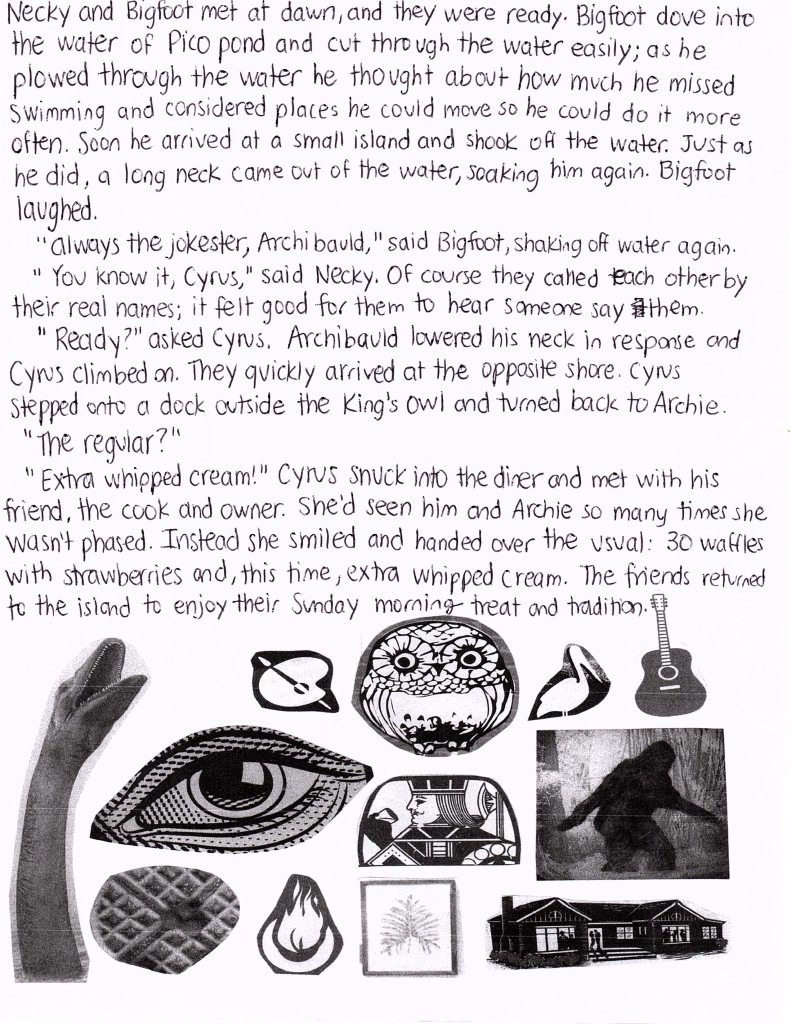 Necky and Bigfoot met at dawn, and they were ready. Bigfoot dove into
the water of Pico pond and cut through the water easily; as he
plowed through the water he thought about how much he missed
swimming and considered places he could move so he could do it more
often. Soon he arrived at a small island and shook off the water. Just as
he did, a long neck came out of the water, soaking him again. Bigfoot
laughed.
"Always the jokester, Archibauld," said Bigfoot, shaking off water again.
"You know it, Cyrus," said Necky. Of course they called each other by
their real names; it felt good for them to hear someone say them.
"Ready?" asked Cyrus. Archibauld lowered his neck in response and
Cyrus climbed on. They quickly arrived at the opposite shore. Cyrus
stepped onto a dock outside the King's Owl and turned back to Archie.
"The regular?"
"Extra whipped cream!" Cyrus snuck into the diner and met with his
friend, the cook and owner. She'd seen him and Archie so many times she
wasn't phased. Instead she smiled and handed over the usual: 30 waffles
with strawberries and, this time, extra whipped cream. The friends returned
to the island to enjoy their Sunday morning treat and tradition.